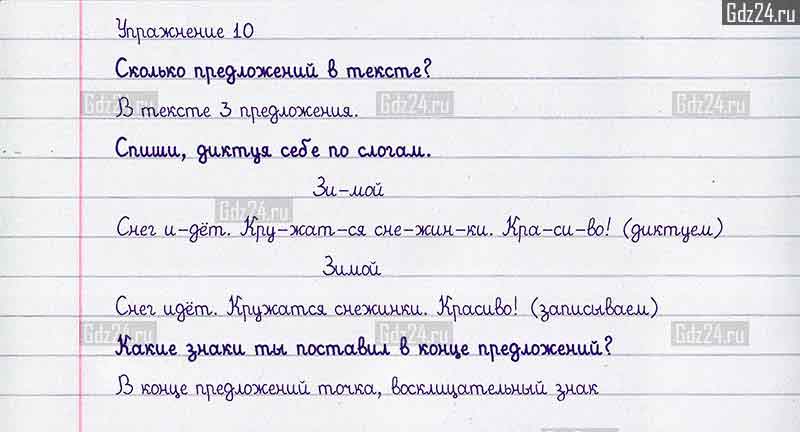 Gdz24.ru
Упражнение 10
Сколько предложений в тексте?
Gdz24.ru Gdz24.ru Gdz24.ru
В тексте 3 предложения.
Спиши, диктуя себе по слогам.
Зи-мой
Gdz24.ru
Снег и-дёт. Кру-жат-ся сне-жин-ки. Кра-си-во! (диктуем)
Зимой
Снег идёт. Кружатся снежинки. Красиво! (записываем)
Gdz24.ru Gdz24.ru Gdz24.ru
Какие знаки ты поставил в конце предложений?
В конце предложений точка, восклицательный знак